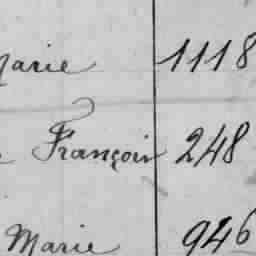 Marie 1118
François 248
Marie 946